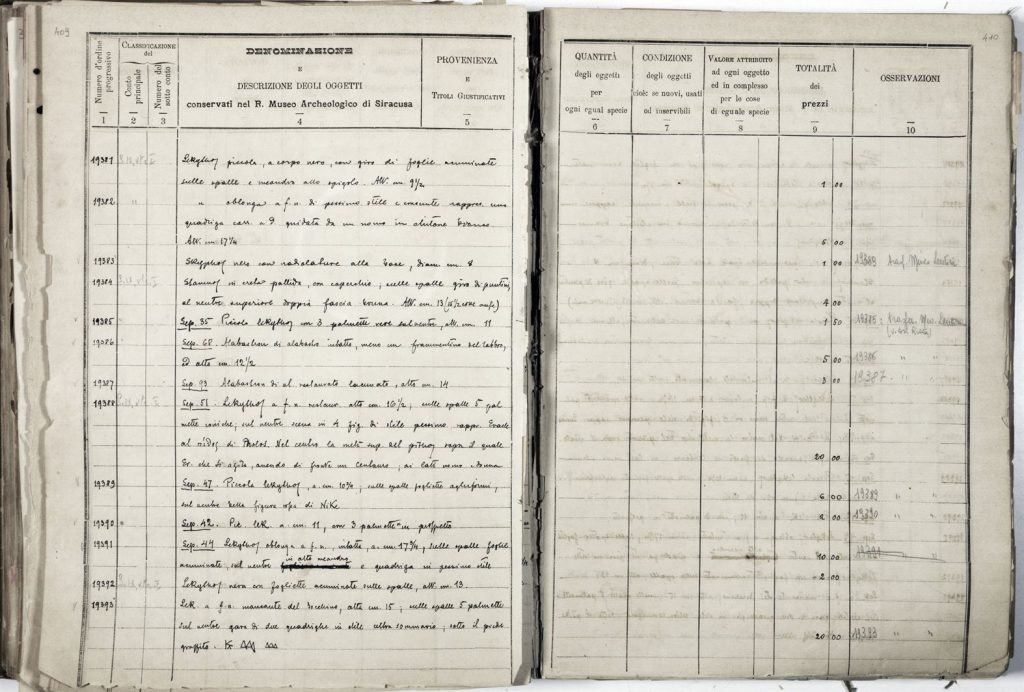 409
Numero d'ordine progressivo
CLASSIFICAZIONE del
Conto principale
Numero del sotto conto
DENOMINAZIONE
E
DESCRIZIONE DEGLI OGGETTI
conservati nel R. Museo Archeologico di Siracusa
PROVENIENZA
E
TITOLI GIUSTIFICATIVI
1 2 3 4 5
19381 Lekythos piccola, a corpo nero, con giro di foglie acuminate
sulle spalle e meandro allo spigolo. Alt. cm 9 1/2
19382 " oblonga a f. n. di pessimo stile e consunte rappres. una
quadriga
Alt. cm. 17 1/4
19383 Skyphos nero con radiolature alla base, diam. cm. 8
19384 Stamnos in creta pallida, con coperchio; sulle spalle giro di puntini,
al ventre superiore doppia fascia bruna. Alt. cm. 13
19385 Sep. 35 Piccolo lekythos con 3 palmette nere sul ventre, alt. cm. 11
19386 Sep. 68. Alabastron di alabastro intatto, meno un frammentino del labbro,
Ed alto cm. 12 1/2
19387 Sep. 93 Alabastron di al. restaurato lacunato, alto cm. 14
19388 Sep. 51. Lekythos a f. n. restaur. alto cm. 16 1/2; sulle spalle 5 pal
mette ioniche; sul ventre scena in 4 fig. di stile pessimo rappr. Eracle
al di Pholos. Nel centro la metà sup. del pithos sopra il quale
Er. che si agita, avendo di fronte un Centauro; ai lati uomo e donna
19389 Sep. 47. Piccola lekythos, a. cm. 10 3/4, sulle spalle fogliette
sul ventre bella figura di Nike
19390 Sep. 42. Pic. lek. a. cm. 11, con 3 palmette in prospetto
19391 Sep. 44 Lekythos oblonga a f. n., intatta, a. cm. 17 3/4, sulle spalle foglie
acuminate, sul ventre in alto meandro e quadriga in pessimo stile
19392 Lekythos nera con fogliette acuminate sulle spalle, alt. cm. 13.
19393 Lek. a f. n. mancante del bocchino, alta cm. 15; sulle spalle 5 palmette
sul ventre gara di due quadrighe in stile oltre sommario; sotto il piede
graffito.
410
QUANTITÀ
degli oggetti
per
ogni egual specie
CONDIZIONE
degli oggetti
cioè: se nuovi, usati
od inservibili
VALORE ATTRIBUITO
ad ogni oggetto
ed in complesso
per le cose
di eguale specie
TOTALITÀ
dei
prezzi
OSSERVAZIONI
6 7 8 9 10
1 00
5 00
1 00 19383 Trasf. Museo Lentini
4 00
1 50 19385: Trasfer. Mus. Lentini
5 00 19386 " "
3 00 19387 " "
20 00
6 00 19389 " "
2 00 19390 " "
10 00 19391 "
2 00
20 00 19393 " "